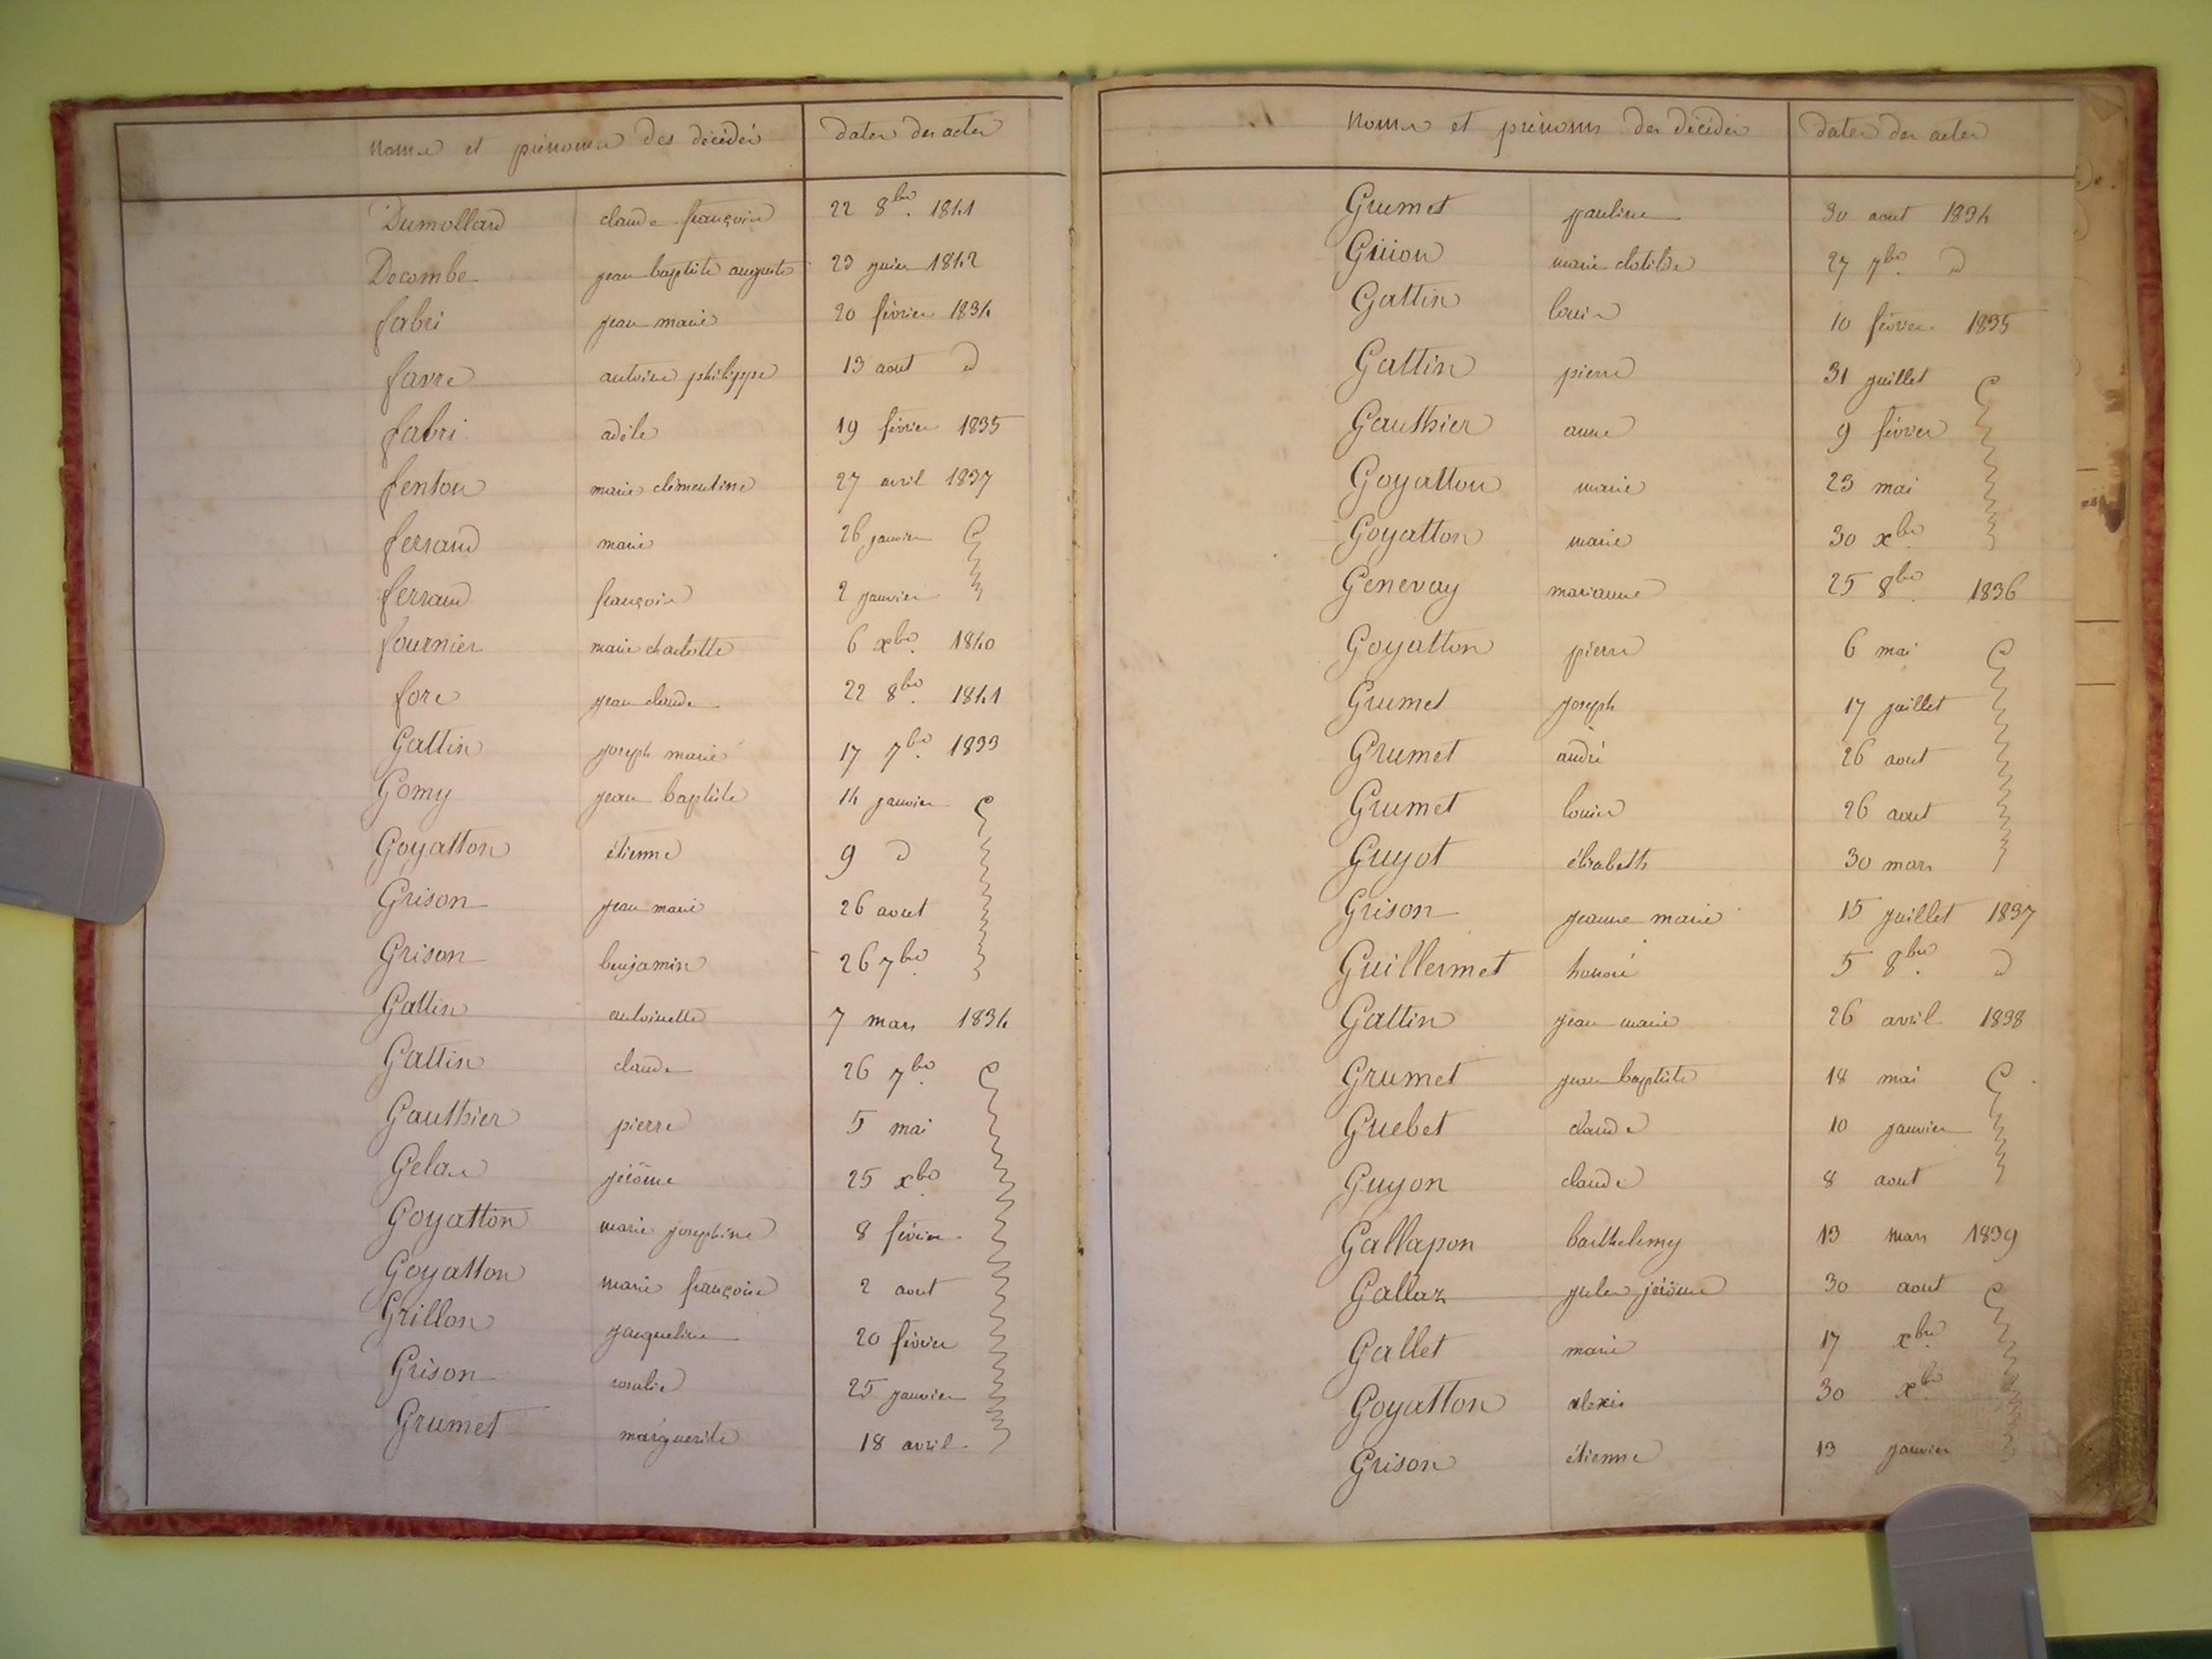 noms et prénoms des décédés dates des actes
Dumollard claude françois 22 8bre 1841
Decombe jean baptiste auguste 23 juin 1842
fabri jean marie 20 février 1834
favre antoine philippe 13 aout d
fabri adèle 19 février 1835
fenton marie clémentine 27 avril 1837
ferrand marie 26 janvier
ferrand françois 2 janvier
fournier marie charlotte 6 xbre 1840
fore jean claude 22 8bre 1841
Gattin joseph marie 17 7bre 1833
Gomy jean baptiste 14 janvier
Goyatton étienne 9 d
Grison jean marie 26 aout
Grison benjamin 26 7bre
Gattin antoinette 7 mars 1834
Gattin claude 26 7bre
Gauthier pierre 5 mai
Gelas jérôme 25 xbre
Goyatton marie joséphine 8 février
Goyatton marie françoise 2 aout
Grillon jacqueline 20 février
Grison rosalie 25 janvier
Grumet marguerite 18 avril
noms et prénoms des décédés dates des actes
Grumet pauline 30 aout 1834
Guion marie clotilde 27 7bre d
Gattin louis 10 février 1835
Gattin pierre 31 juillet
Gauthier anne 9 février
Goyatton marie 23 mai
Goyatton marie 30 xbre
Genevay marianne 25 8bre 1836
Goyatton pierre 6 mai
Grumet joseph 17 juillet
Grumet andré 26 aout
Grumet louis 26 aout
Guyot élisabeth 30 mars
Grison jeanne marie 15 juillet 1837
Guillermet honoré 5 8bre d
Gattin jean marie 26 avril 1838
Grumet jean baptiste 18 mai
Guebet claude 10 janvier
Guyon claude 8 aout
Gallapon barthelemy 13 mars 1839
Gallaz jules jérôme 30 aout
Gallet marie 17 xbre
Goyatton alexis 30 xbre
Grison étienne 13 janvier